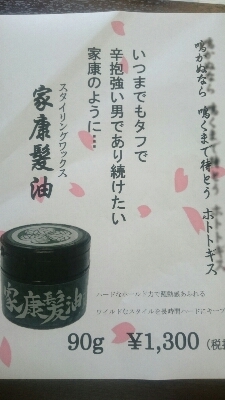 鳴かぬなら 鳴くまで待とう ホトトギス
いつまでもタフで
辛抱強い男であり続けたい
家康のように…
スタイリングワックス
家康髪油
家康髪油
ハードなホールド力で躍動感あふれる
ワイルドなスタイルを長時間ハードにキープ
90g ¥1,300 (税